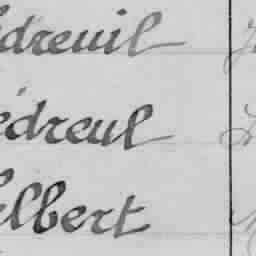 dreuil
edreul
lbert